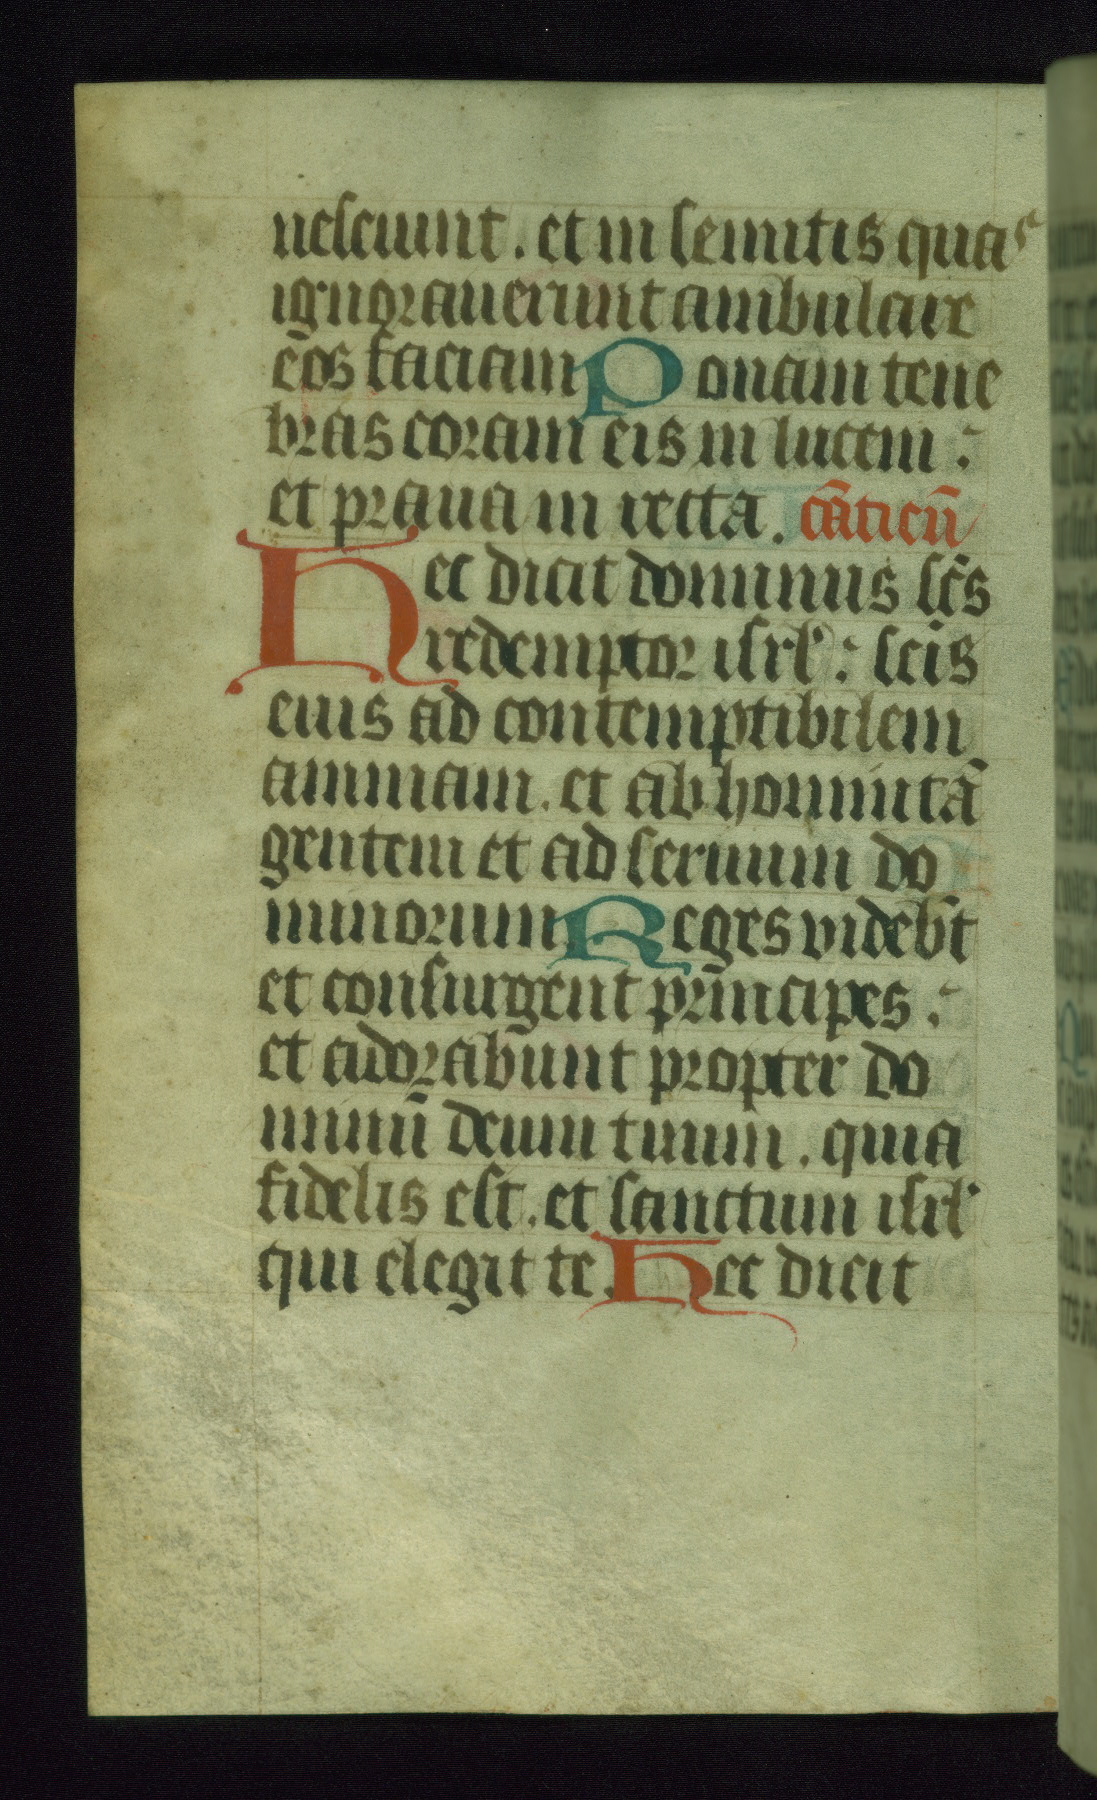 nesciunt. et in semitis quas
ignorauerunt ambulare
eos faciam Ponam tene
bras coram eis in lucem :
et praua in recta. cāticū
Hec dicit dominus scs̄
redemptor isrl' : scis
eius ad contemptibilem
animam. et ab hominatā
gentem et ad seruum do
minorum Reges videb̄t
et consurgent prīncipes :
et adorabunt propter do
minū deum tuum. quia
fidelis est. et sanctum isrl'
qui elegit te. Hec dicit